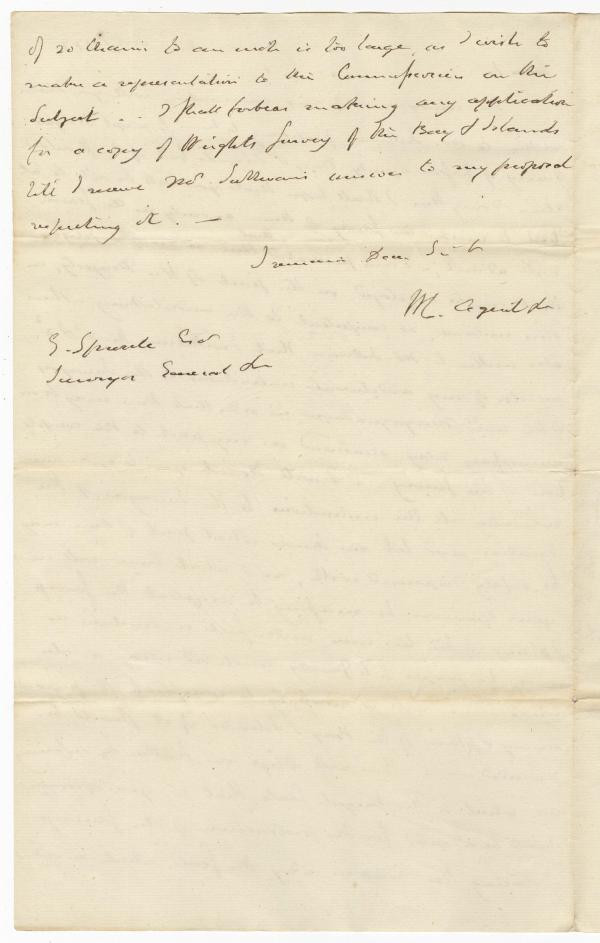 of 20 Chains to an inch is too large, as I wish to
make a representation to the Commissioners on this
Subject .. I shall forbear making any application
for a copy of Wrights Survey of the Bay & Islands
till I receive Mr Sullivans answer to my proposal
respecting it . —
I remain Dear Sir &c
G. Sproule Esqr
Surveyor General &c